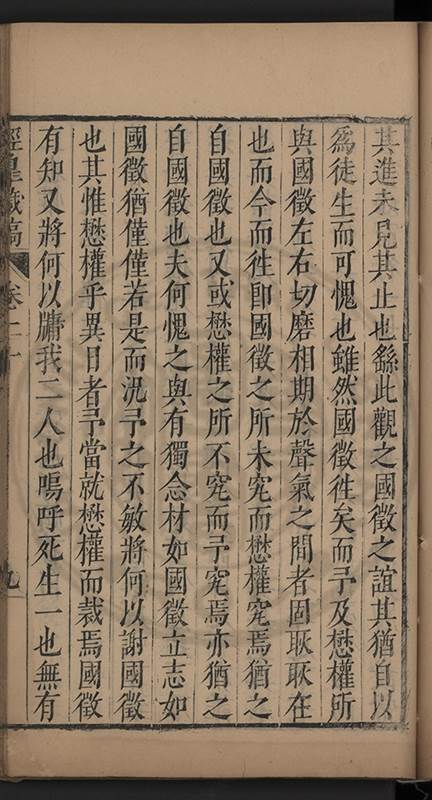 其進未見其止也繇此觀之國徵之誼其猶自以
爲徒生而可愧也雖然國徵徃矣而予及懋權所
與國徵左右切磨相期於聲氣之間者固耿耿在
也而今而徃卽國徵之所未究而懋權究焉猶之
自國徵也又或懋權之所不究而予究焉亦猶之
自國徵也夫何愧之與有獨念材如國徵立志如
國徵猶僅僅若是而況予之不敏將何以謝國徵
也其惟懋權乎異日者予當就懋權而裁焉國徵
有知又將何以牖我二人也嗚呼死生一也無有
涇臯藏稿 卷二十 九